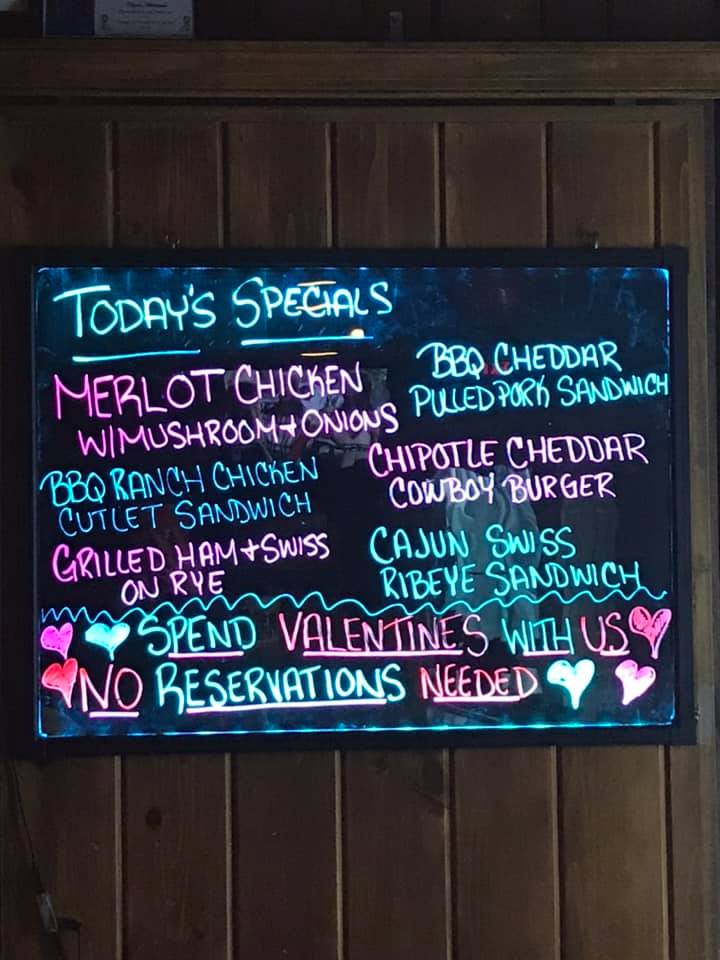 TODAY'S SPECIALS
MERLOT CHICKEN
W/MUSHROOM + ONIONS
BBQ RANCH CHICKEN
CUTLET SANDWICH
GRILLED HAM + SWISS
ON RYE
BBQ CHEDDAR
PULLED PORK SANDWICH
CHIPOTLE CHEDDAR
COWBOY BURGER
CAJUN SWISS
RIBEYE SANDWICH
SPEND VALENTINES WITH US
NO RESERVATIONS NEEDED